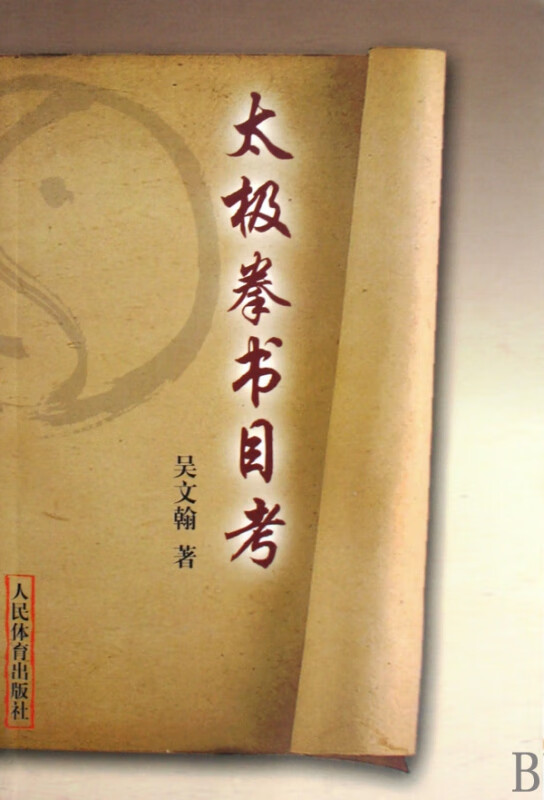 太极拳书目考
吴文翰 著
人民体育出版社
B